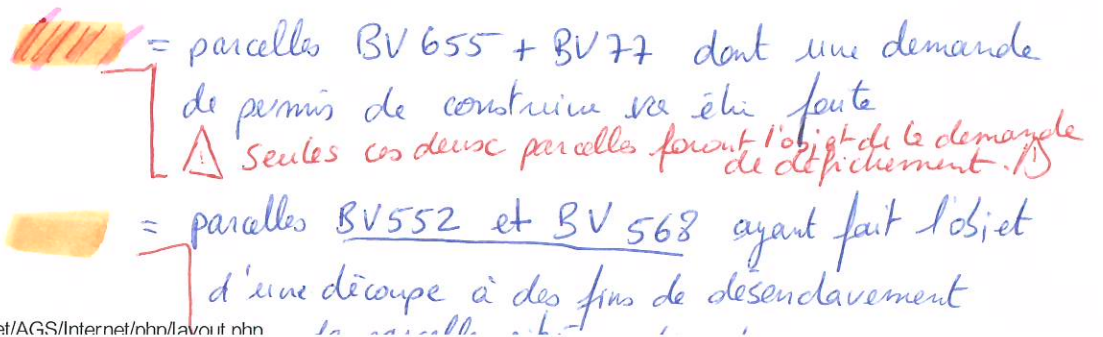 = parcelles BV 655 + BV 77 dont une demande
de permis de construire va être faite
⚠ Seules ces deux parcelles feront l'objet de la demande
de défrichement. ⚠
= parcelles BV552 et BV 568 ayant fait l'objet
d'une découpe à des fins de désenclavement
et/AGS/Internet/php/layout.php